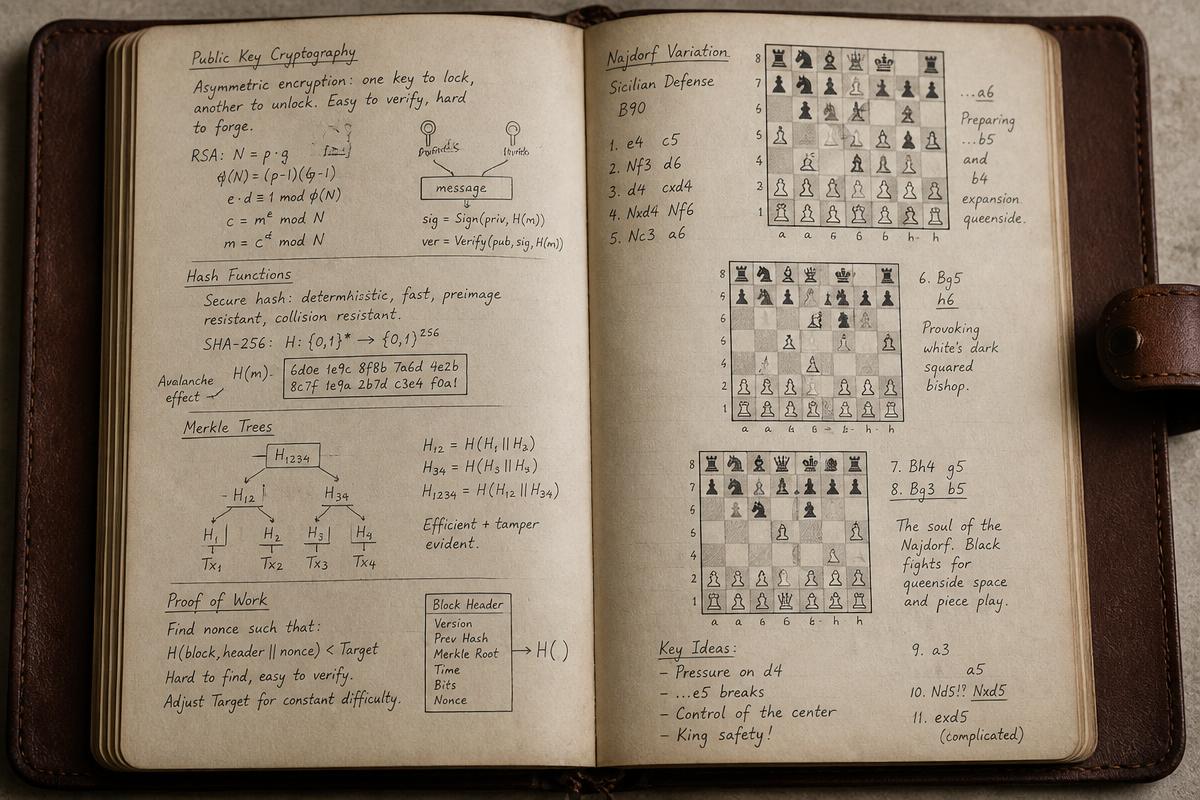 Public Key Cryptography
Asymmetric encryption: one key to lock,
another to unlock. Easy to verify, hard
to forge.
RSA: N = p·q
ϕ(N) = (p-1)(q-1)
e·d ≡ 1 mod ϕ(N)
c = mᵉ mod N
m = cᵈ mod N
message
sig = Sign(priv, H(m))
ver = Verify(pub, sig, H(m))
Hash Functions
Secure hash: fast, preimage
resistant, collision resistant.
SHA-256: H: {0,1}* → {0,1}²⁵⁶
Avalanche
effect
H(m)-
6d0e 1e9c 8f8b 7a6d 4e2b
8c7f 1e9a 2b7d c3e4 f0a!
Merkle Trees
H₁₂₃₄
H₁₂ H₃₄
H₁ H₂ H₃ H₄
Tx₁ Tx₂ Tx₃ Tx₄
H₁₂ = H(H₁ || H₂)
H₃₄ = H(H₃ || H₃)
H₁₂₃₄ = H(H₁₂ || H₃₄)
Efficient + tamper
evident.
Proof of Work
Find nonce such that:
H(block,header || nonce) < Target
Hard to find, easy to verify.
Adjust Target for constant difficulty.
Block Header
Version
Prev Hash
Merkle Root
Time
Bits
Nonce
→ H( )
Najdorf Variation
Sicilian Defense
B90
1. e4 c5
2. Nf3 d6
3. d4 cxd4
4. Nxd4 Nf6
5. Nc3 a6
8
7
6
5
4
3
1
a a 6 6 b h h
...a6
Preparing
...b5
and
b4
expansion
queenside.
8
5
6
6
4
2
1
a a h h
6. Bg5
h6
Provoking
white's dark
squared
bishop.
8
7
6
5
4
2
1
a a 6 6 h h
7. Bh4 g5
8. Bg3 b5
The soul of the
Najdorf. Black
fights for
queenside space
and piece play.
Key Ideas:
– Pressure on d4
– ...e5 breaks
– Control of the center
– King safety!
9. a3
a5
10. Nd5!? Nxd5
11. exd5
(complicated)